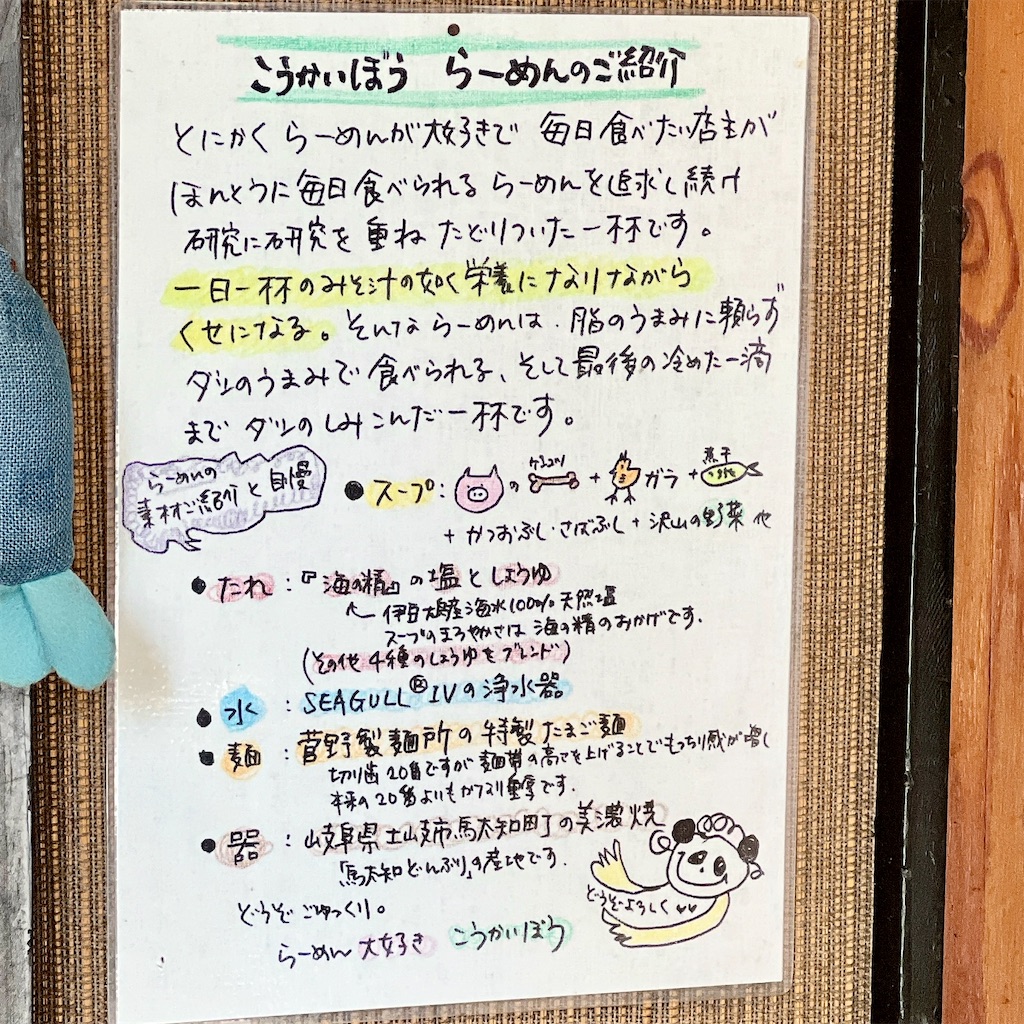 こうかいぼう らーめんのご紹介
とにかく らーめんが大好きで 毎日食べたい店主が
ほんとうに毎日食べられる らーめんを追求し続け
研究に研究を重ね たどりついた一杯です。
一日一杯のみそ汁の如く栄養になりながら
くせになる。そんな らーめんは、脂のうまみに頼らず
ダシのうまみで食べられる、そして最後の冷めた一滴
まで ダシのしみこんだ一杯です。
らーめんの
素材ご紹介と自慢
●スープ: の ゲンコツ + ガラ + 煮干
+ かつおぶし・さばぶし + 沢山の野菜 他
●たれ:『海の精』の塩としょうゆ
伊豆大島産海水100%天然塩
スープのまろやかさは 海の精のおかげです.
(その他 4種のしょうゆをブレンド)
●水:SEAGULL® IVの浄水器
●麺:菅野製麺所の特製たまご麺
切り歯20番ですが麺帯の高さを上げることでもっちり感が増し
本来の20番よりもかつり重厚です.
●器:岐阜県土岐市馬太知町の美濃焼
「馬太知どんぶり」の産地です.
どうぞごゆっくり。
どうぞよろしく♥♥
らーめん大好き こうかいぼう